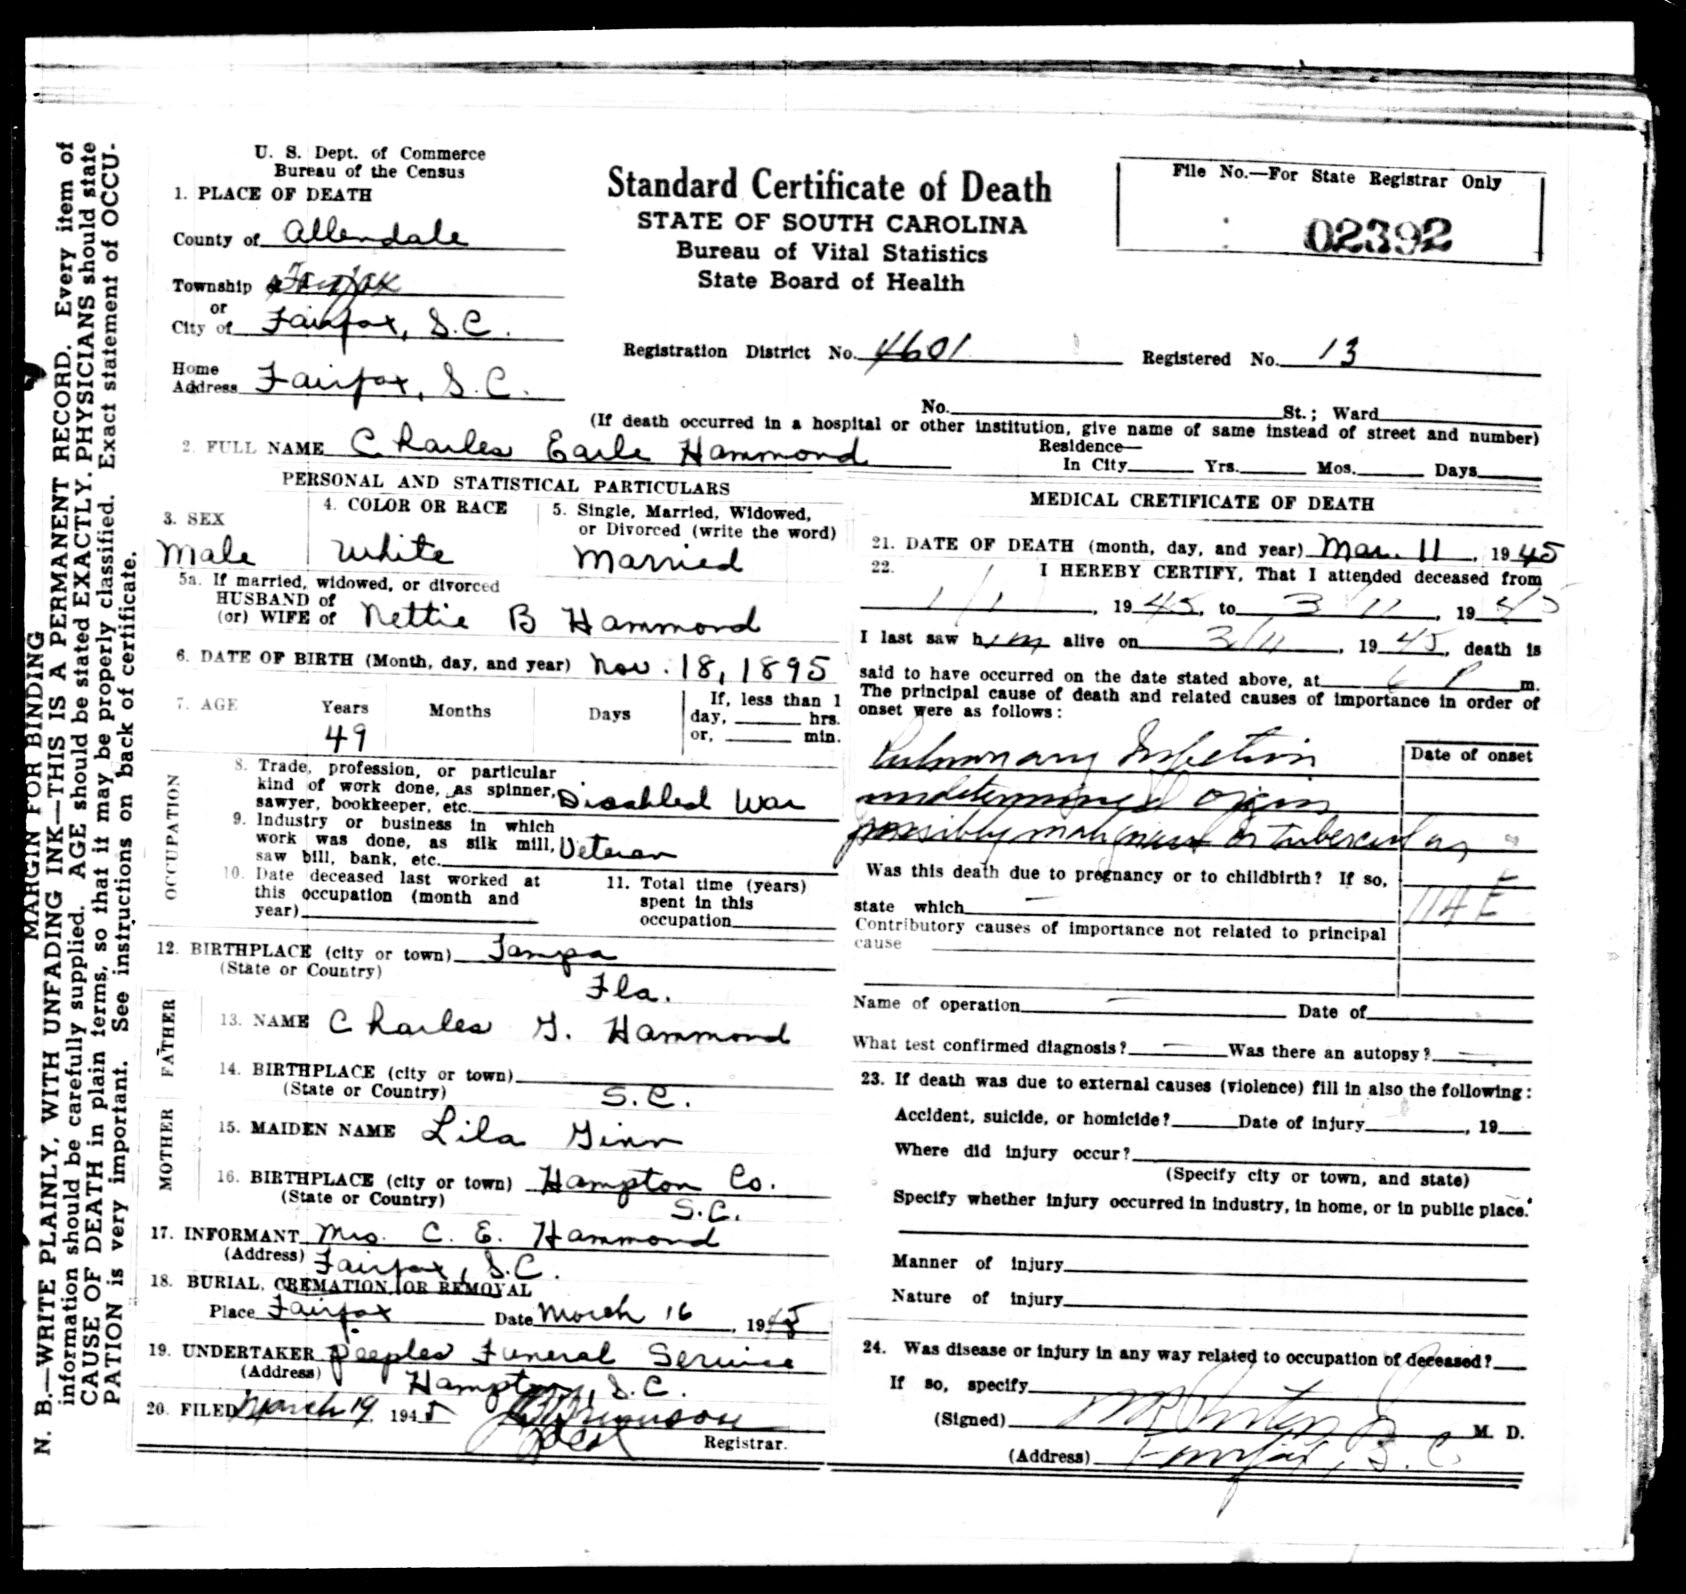 U. S. Dept. of Commerce
Bureau of the Census
1. PLACE OF DEATH
County of Allendale
Township Fairfax
or
City of Fairfax, S.C.
Home
Address Fairfax, S.C.
Standard Certificate of Death
STATE OF SOUTH CAROLINA
Bureau of Vital Statistics
State Board of Health
File No.—For State Registrar Only
02392
Registration District No. 4601 Registered No. 13
No. St.; Ward
(If death occurred in a hospital or other institution, give name of same instead of street and number)
2. FULL NAME Charles Earle Hammond
Residence—
In City Yrs. Mos. Days
PERSONAL AND STATISTICAL PARTICULARS
3. SEX
Male
4. COLOR OR RACE
White
5. Single, Married, Widowed,
or Divorced (write the word)
Married
5a. If married, widowed, or divorced
HUSBAND of
(or) WIFE of Nettie B Hammond
6. DATE OF BIRTH (Month, day, and year) Nov. 18, 1895
7. AGE Years Months Days
49
If, less than 1
day, hrs.
or, min.
OCCUPATION
8. Trade, profession, or particular
kind of work done, as spinner,
sawyer, bookkeeper, etc. Disabled War
9. Industry or business in which
work was done, as silk mill,
saw bill, bank, etc. Veteran
10. Date deceased last worked at
this occupation (month and
year)
11. Total time (years)
spent in this
occupation
12. BIRTHPLACE (city or town) Tampa
(State or Country) Fla.
FATHER
13. NAME Charles G. Hammond
14. BIRTHPLACE (city or town)
(State or Country) S.C.
MOTHER
15. MAIDEN NAME Lila Ginn
16. BIRTHPLACE (city or town) Hampton Co.
(State or Country) S.C.
17. INFORMANT Mrs. C. E. Hammond
(Address) Fairfax, S.C.
18. BURIAL, CREMATION, OR REMOVAL
Place Fairfax Date March 16, 1945
19. UNDERTAKER Peeples Funeral Service
(Address) Hampton, S.C.
20. FILED March 19, 1945
Registrar.
MEDICAL CRETIFICATE OF DEATH
21. DATE OF DEATH (month, day, and year) Mar. 11, 1945
22. I HEREBY CERTIFY, That I attended deceased from
1/1, 1945, to 3/11, 1945
I last saw him alive on 3/11, 1945, death is
said to have occurred on the date stated above, at 6 P m.
The principal cause of death and related causes of importance in order of
onset were as follows:
Date of onset
Pulmonary Infection
undetermined origin
possibly malignant or tuberculous
Was this death due to pregnancy or to childbirth? If so,
state which —
114 E
Contributory causes of importance not related to principal
cause
Name of operation — Date of
What test confirmed diagnosis? — Was there an autopsy? —
23. If death was due to external causes (violence) fill in also the following:
Accident, suicide, or homicide? Date of injury , 19
Where did injury occur?
(Specify city or town, and state)
Specify whether injury occurred in industry, in home, or in public place.
Manner of injury
Nature of injury
24. Was disease or injury in any way related to occupation of deceased?
If so, specify
(Signed) M. D.
(Address) Fairfax, S. C.
MARGIN FOR BINDING
N. B.—WRITE PLAINLY, WITH UNFADING INK—THIS IS A PERMANENT RECORD. Every item of
information should be carefully supplied. AGE should be stated EXACTLY. PHYSICIANS should state
CAUSE OF DEATH in plain terms, so that it may be properly classified. Exact statement of OCCU-
PATION is very important. See instructions on back of certificate.